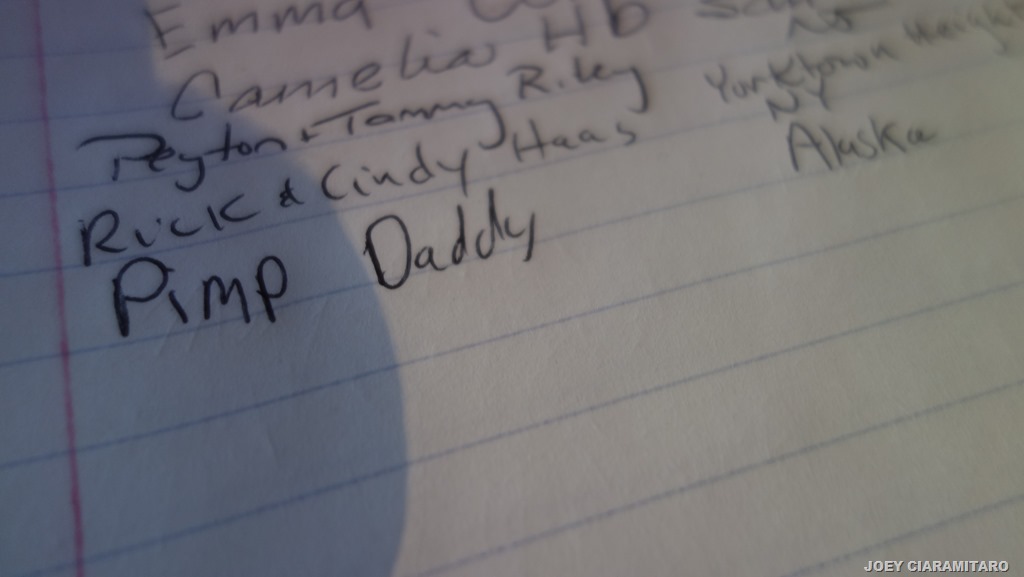 Emma
Camelia HB
Peyton & Tommy Riley Yorktown Heights
NY
Rick & Cindy Haas Alaska
Pimp Daddy
JOEY CIARAMITARO